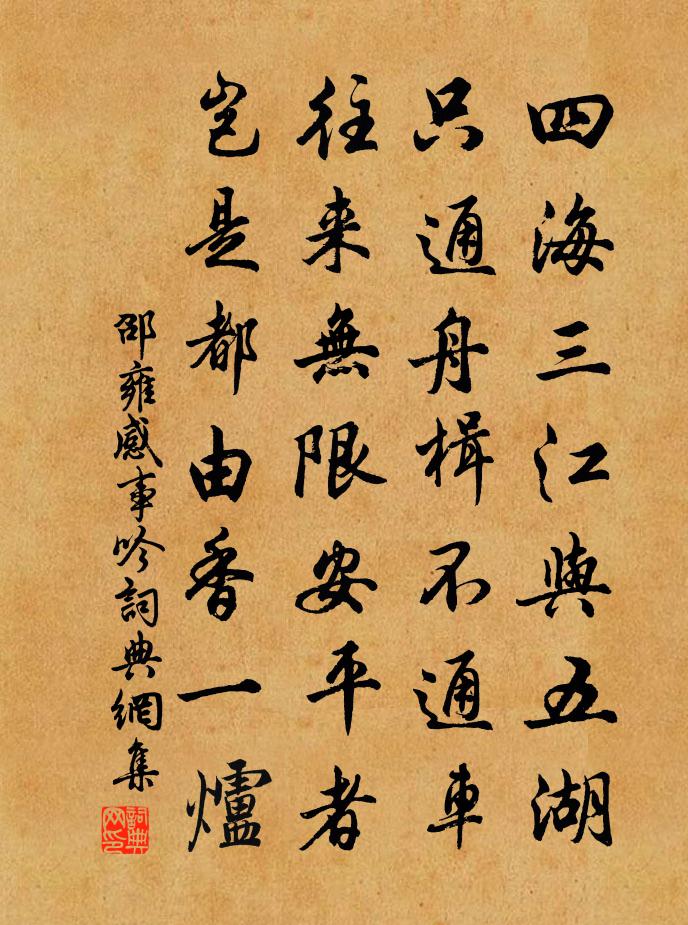 四海三江與五湖
只通舟楫不通車
往來無限安平者
豈是都由香一爐
邵雍感事吟詞典網集
詞典网印